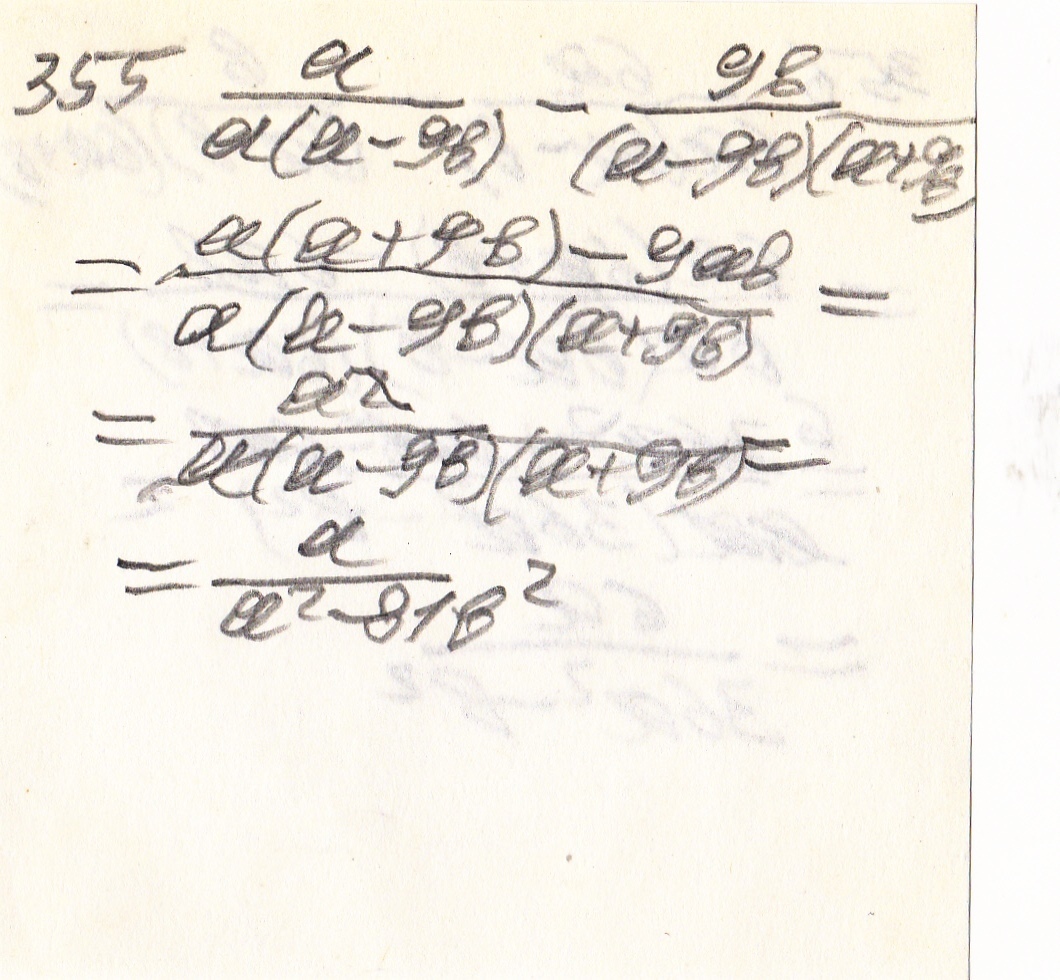 355 a/(a(a-9b)) - 9b/((a-9b)(a+9b))
= (a(a+9b)-9ab)/(a(a-9b)(a+9b)) =
= a²/(a(a-9b)(a+9b)) =
= a/(a²-81b²)